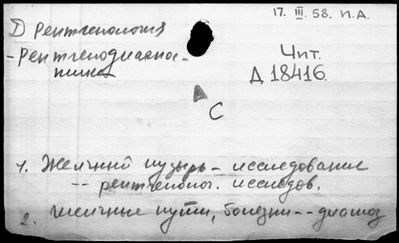 17. III. 58. п.А.
D Рентгенология
- Рентгенодиагнос-
тика
Чит.
Д 18416.
С
1. Желчный пузырь - исследование
-- рентгенолог. исследов.
2. Желчные пути, болезни -- диагноз